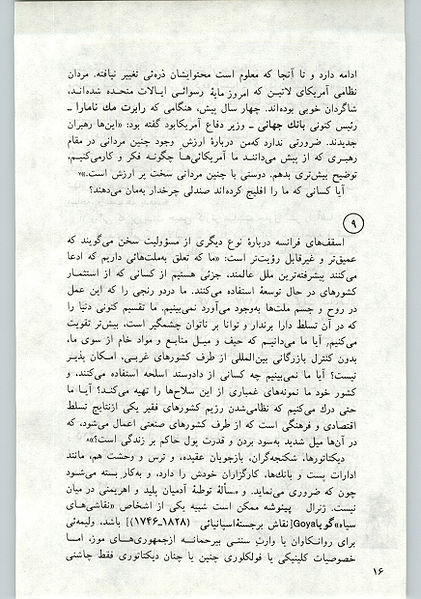 ادامه دارد و تا آنجا که معلوم است محتوایشان ذره‌ئی تغییر نیافته. مردان
نظامی آمریکای لاتین که امروز مایهٔ رسوائی ایالات متحده شده‌اند،
شاگردان خوبی بوده‌اند. چهار سال پیش، هنگامی که رابرت مك نامارا ـ
رئیس کنونی بانك جهانی ـ وزیر دفاع آمریکابود گفته بود: «این‌ها رهبران
جدیدند. ضرورتی ندارد که‌من دربارهٔ ارزش وجود چنین مردانی در مقام
رهبری که از پیش می‌دانند ما آمریکائی‌ها چگونه فکر و کارمی‌کنیم،
توضیح بیش‌تری بدهم. دوستی با چنین مردانی سخت پر ارزش است.»
آیا کسانی که ما را افلیج کرده‌اند صندلی چرخدار به‌مان می‌دهند؟
۹
اسقف‌های فرانسه دربارهٔ نوع دیگری از مسؤولیت سخن می‌گویند که
عمیق‌تر و غیرقابل رؤیت‌تر است: «ما که تعلق به‌ملت‌هائی داریم که ادعا
می‌کنند پیشرفته‌ترین ملل عالمند، جزئی هستیم از کسانی که از استثمار
کشورهای در حال توسعهٔ استفاده می‌کنند. ما دردو رنجی را که این عمل
در روح و جسم ملت‌ها به‌وجود می‌آورد نمی‌بینیم. ما تقسیم کنونی دنیا را
که در آن تسلط دارا برندار و توانا بر ناتوان چشمگیر است، بیش‌تر تقویت
می‌کنیم. آیا ما می‌دانیم که حیف و میل منابع و مواد خام از سوی ما،
بدون کنترل بازرگانی بین‌المللی از طرف کشورهای غربی، امکان پذیر
نیست؟ آیا ما نمی‌بینیم چه کسانی از دادوستد اسلحه استفاده می‌کنند، و
کشور خود ما نمونه‌های غمباری از این سلاح‌ها را تهیه می‌کند؟ آیا ما
حتی درك می‌کنیم که نظامی‌شدن رژیم کشورهای فقیر یکی ازنتایج تسلط
اقتصادی و فرهنگی است که از طرف کشورهای صنعتی اعمال می‌شود، که
در آن‌ها میل شدید به‌سود بردن و قدرت پول حاکم بر زندگی است؟»
دیکتاتورها، شکنجه‌گران، بازجویان عقیده، و ترس و وحشت هم، مانند
ادارات پست و بانك‌ها، کارگزاران خودش را دارد، و به‌کار بسته می‌شود
چون که ضروری می‌نماید. و مسألهٔ توطئهٔ آدمیان پلید و اهریمنی در میان
نیست. ژنرال پینوشه ممکن است شبیه یکی از اشخاص «نقاشی‌های
سیاه» گویا Goya[نقاش برجستهٔ‌اسپانیائی (۱۸۲۸ـ۱۷۴۶)] باشد، ولیمه‌ئی
برای روانکاوان یا وارث سنتی بیرحمانه ازجمهوری‌های موز، اما
خصوصیات کلینیکی یا فولکلوری چنین یا چنان دیکتاتوری فقط چاشنی
۱۶